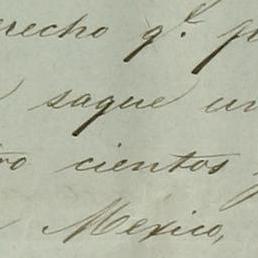 erecho q.e
saque un
tro cientos
Mexico,